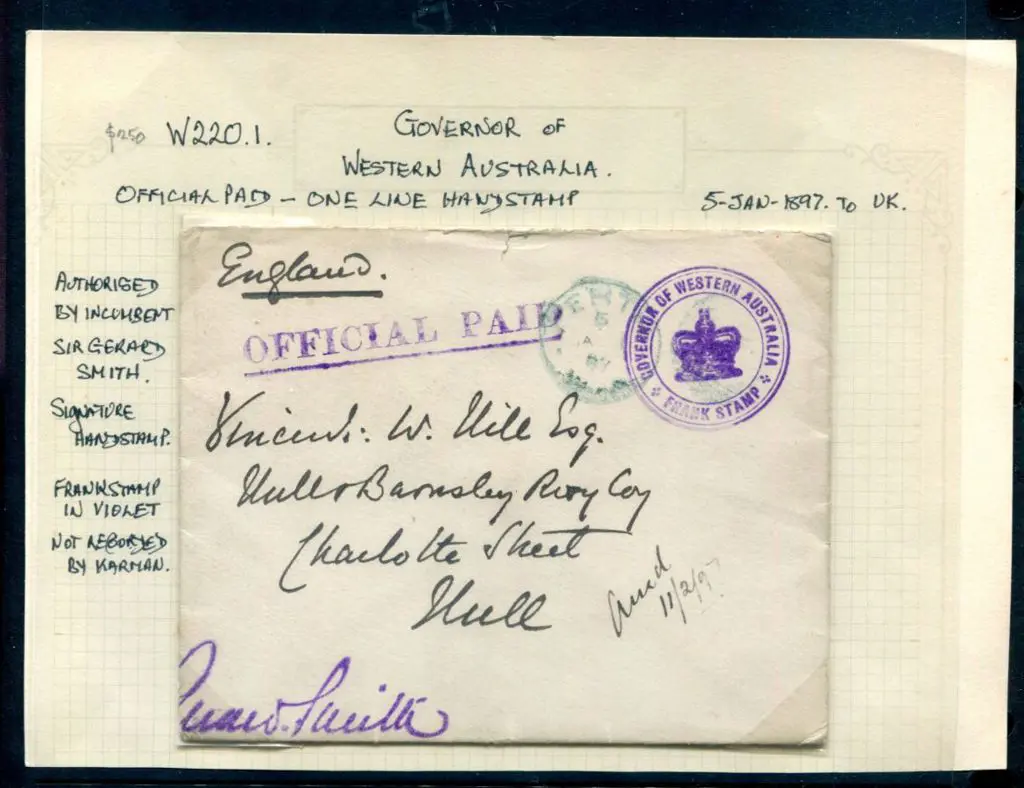 $250 W220.1.
GOVERNOR OF
WESTERN AUSTRALIA.
OFFICIAL PAID - ONE LINE HANDSTAMP
5-JAN-1897. TO UK.
AUTHORISED
BY INCUMBENT
SIR GERARD
SMITH.
SIGNATURE
HANDSTAMP.
FRANKSTAMP
IN VIOLET
NOT RECORDED
BY KARMAN.
England.
OFFICIAL PAID
PERTH
5
JA
97
GOVERNOR OF WESTERN AUSTRALIA
FRANK STAMP
Vincent W. Hill Esq.
Hull & Barnsley Rwy Coy
Charlotte Street
Hull
11/2/97
Gerard Smith